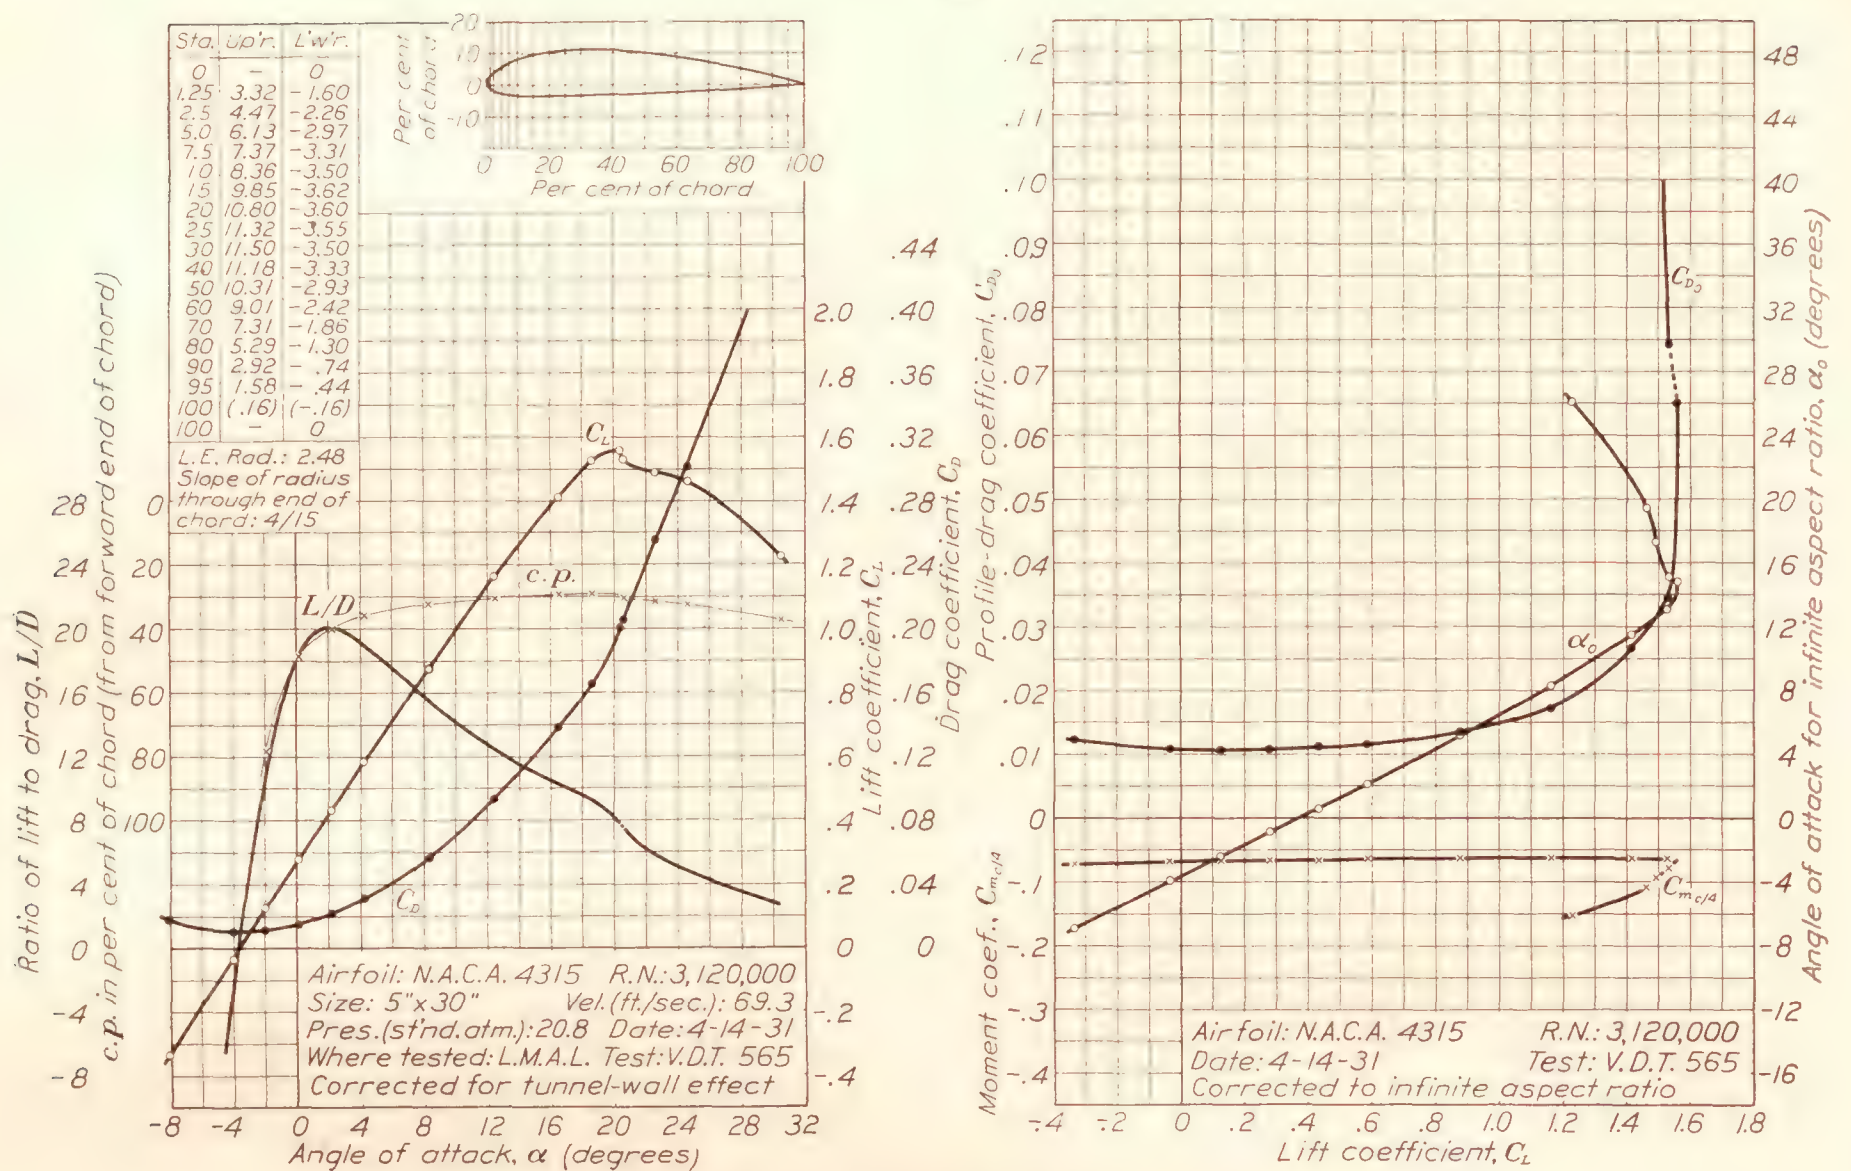 Sta. Up'r. L'w'r.
0 - 0
1.25 3.32 -1.60
2.5 4.47 -2.26
5.0 6.13 -2.97
7.5 7.37 -3.31
10 8.36 -3.50
15 9.85 -3.62
20 10.80 -3.60
25 11.32 -3.55
30 11.50 -3.50
40 11.18 -3.33
50 10.31 -2.93
60 9.01 -2.42
70 7.31 -1.86
80 5.29 -1.30
90 2.92 - .74
95 1.58 - .44
100 (.16) (-.16)
100 - 0
L.E. Rad.: 2.48
Slope of radius
through end of
chord: 4/15
Per cent
of chord
20
10
0
-10
0 20 40 60 80 100
Per cent of chord
Ratio of lift to drag, L/D
28
24
20
16
12
8
4
0
-4
-8
c.p. in per cent of chord (from forward end of chord)
0
20
40
60
80
100
L/D
c.p.
C_L
C_D
2.0
1.8
1.6
1.4
1.2
1.0
.8
.6
.4
.2
0
-.2
-.4
Lift coefficient, C_L
.44
.40
.36
.32
.28
.24
.20
.16
.12
.08
.04
0
Drag coefficient, C_D
Airfoil: N.A.C.A. 4315 R.N.: 3,120,000
Size: 5"x30" Vel.(ft./sec.): 69.3
Pres.(st'nd. atm.): 20.8 Date: 4-14-31
Where tested: L.M.A.L. Test: V.D.T. 565
Corrected for tunnel-wall effect
-8 -4 0 4 8 12 16 20 24 28 32
Angle of attack, α (degrees)
Profile-drag coefficient, C_D0
.12
.11
.10
.09
.08
.07
.06
.05
.04
.03
.02
.01
0
Moment coef., C_mc/4
-.1
-.2
-.3
-.4
C_D0
α_0
C_mc/4
48
44
40
36
32
28
24
20
16
12
8
4
0
-4
-8
-12
-16
Angle of attack for infinite aspect ratio, α_0 (degrees)
Airfoil: N.A.C.A. 4315 R.N.: 3,120,000
Date: 4-14-31 Test: V.D.T. 565
Corrected to infinite aspect ratio
-.4 -.2 0 .2 .4 .6 .8 1.0 1.2 1.4 1.6 1.8
Lift coefficient, C_L